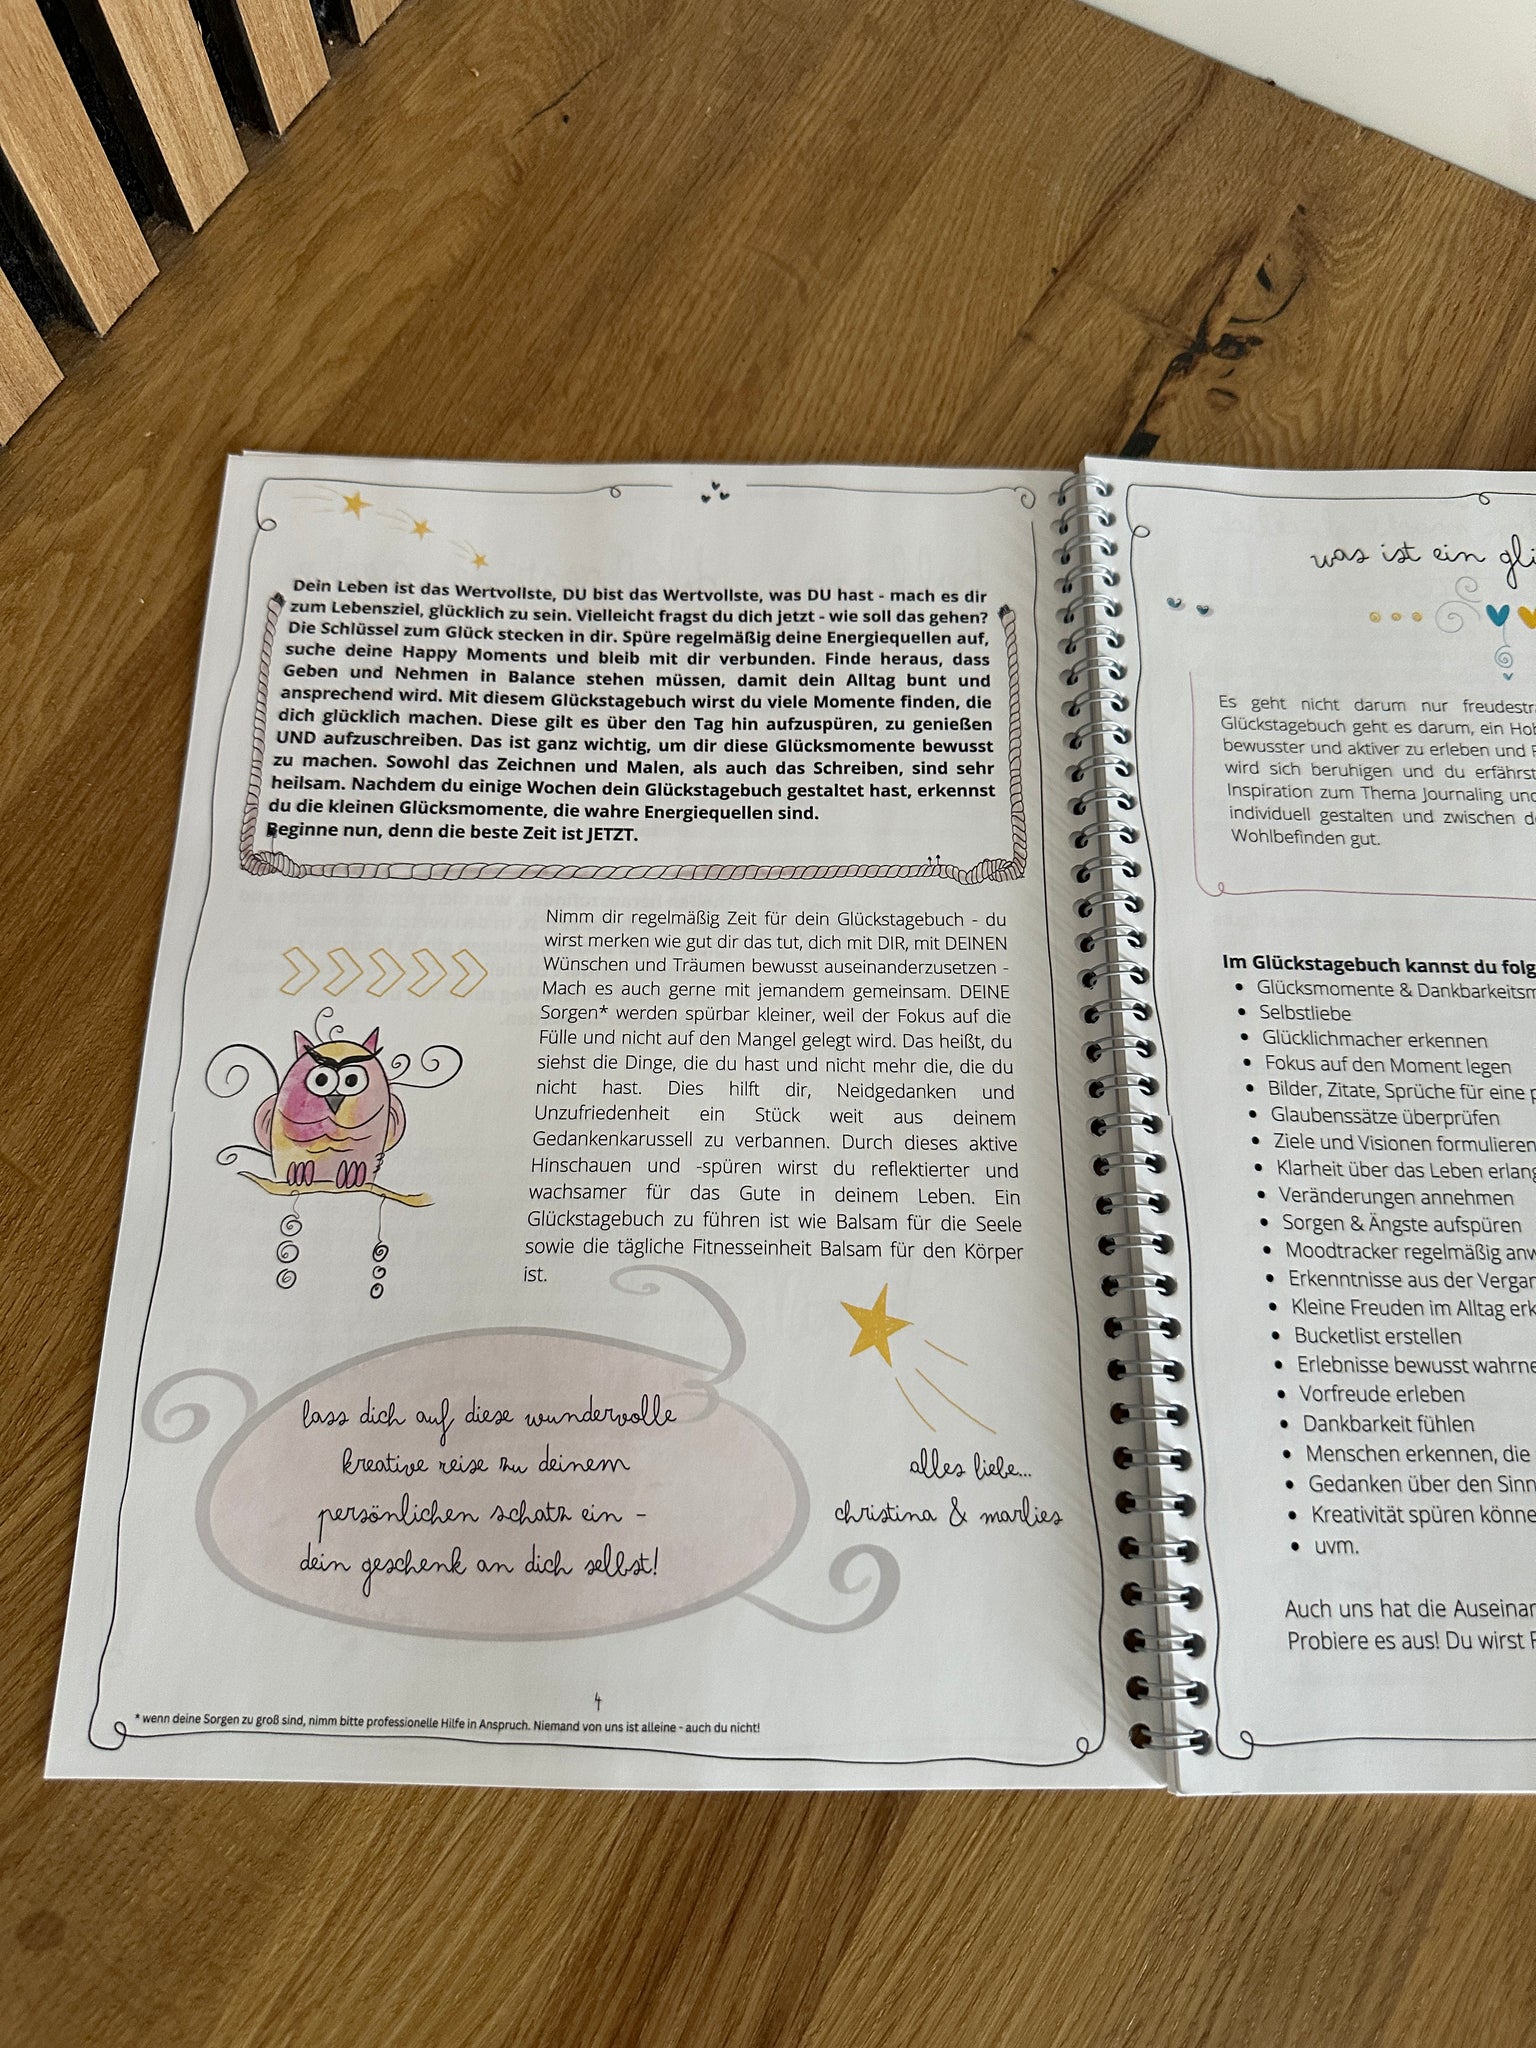 Dein Leben ist das Wertvollste, DU bist das Wertvollste, was DU hast - mach es dir
zum Lebensziel, glücklich zu sein. Vielleicht fragst du dich jetzt - wie soll das gehen?
Die Schlüssel zum Glück stecken in dir. Spüre regelmäßig deine Energiequellen auf,
suche deine Happy Moments und bleib mit dir verbunden. Finde heraus, dass
Geben und Nehmen in Balance stehen müssen, damit dein Alltag bunt und
ansprechend wird. Mit diesem Glückstagebuch wirst du viele Momente finden, die
dich glücklich machen. Diese gilt es über den Tag hin aufzuspüren, zu genießen
UND aufzuschreiben. Das ist ganz wichtig, um dir diese Glücksmomente bewusst
zu machen. Sowohl das Zeichnen und Malen, als auch das Schreiben, sind sehr
heilsam. Nachdem du einige Wochen dein Glückstagebuch gestaltet hast, erkennst
du die kleinen Glücksmomente, die wahre Energiequellen sind.
Beginne nun, denn die beste Zeit ist JETZT.
Nimm dir regelmäßig Zeit für dein Glückstagebuch - du
wirst merken wie gut dir das tut, dich mit DIR, mit DEINEN
Wünschen und Träumen bewusst auseinanderzusetzen -
Mach es auch gerne mit jemandem gemeinsam. DEINE
Sorgen* werden spürbar kleiner, weil der Fokus auf die
Fülle und nicht auf den Mangel gelegt wird. Das heißt, du
siehst die Dinge, die du hast und nicht mehr die, die du
nicht hast. Dies hilft dir, Neidgedanken und
Unzufriedenheit ein Stück weit aus deinem
Gedankenkarussell zu verbannen. Durch dieses aktive
Hinschauen und -spüren wirst du reflektierter und
wachsamer für das Gute in deinem Leben. Ein
Glückstagebuch zu führen ist wie Balsam für die Seele
sowie die tägliche Fitnesseinheit Balsam für den Körper
ist.
lass dich auf diese wundervolle
kreative reise zu deinem
persönlichen schatz ein -
dein geschenk an dich selbst!
alles liebe...
christina & marlies
4
* wenn deine Sorgen zu groß sind, nimm bitte professionelle Hilfe in Anspruch. Niemand von uns ist alleine - auch du nicht!
was ist ein
Es geht nicht darum nur
Glückstagebuch geht es darum, ein
bewusster und aktiver zu erleben und
wird sich beruhigen und du erfährst
Inspiration zum Thema Journaling und
individuell gestalten und zwischen
Wohlbefinden gut.
Im Glückstagebuch kannst du
• Glücksmomente &
• Selbstliebe
• Glücklichmacher erkennen
• Fokus auf den Moment legen
• Bilder, Zitate, Sprüche für eine
• Glaubenssätze überprüfen
• Ziele und Visionen formulieren
• Klarheit über das Leben
• Veränderungen annehmen
• Sorgen & Ängste aufspüren
• Moodtracker regelmäßig
• Erkenntnisse aus der
• Kleine Freuden im Alltag
• Bucketlist erstellen
• Erlebnisse bewusst
• Vorfreude erleben
• Dankbarkeit fühlen
• Menschen erkennen, die
• Gedanken über den
• Kreativität spüren
• uvm.
Auch uns hat die
Probiere es aus! Du wirst